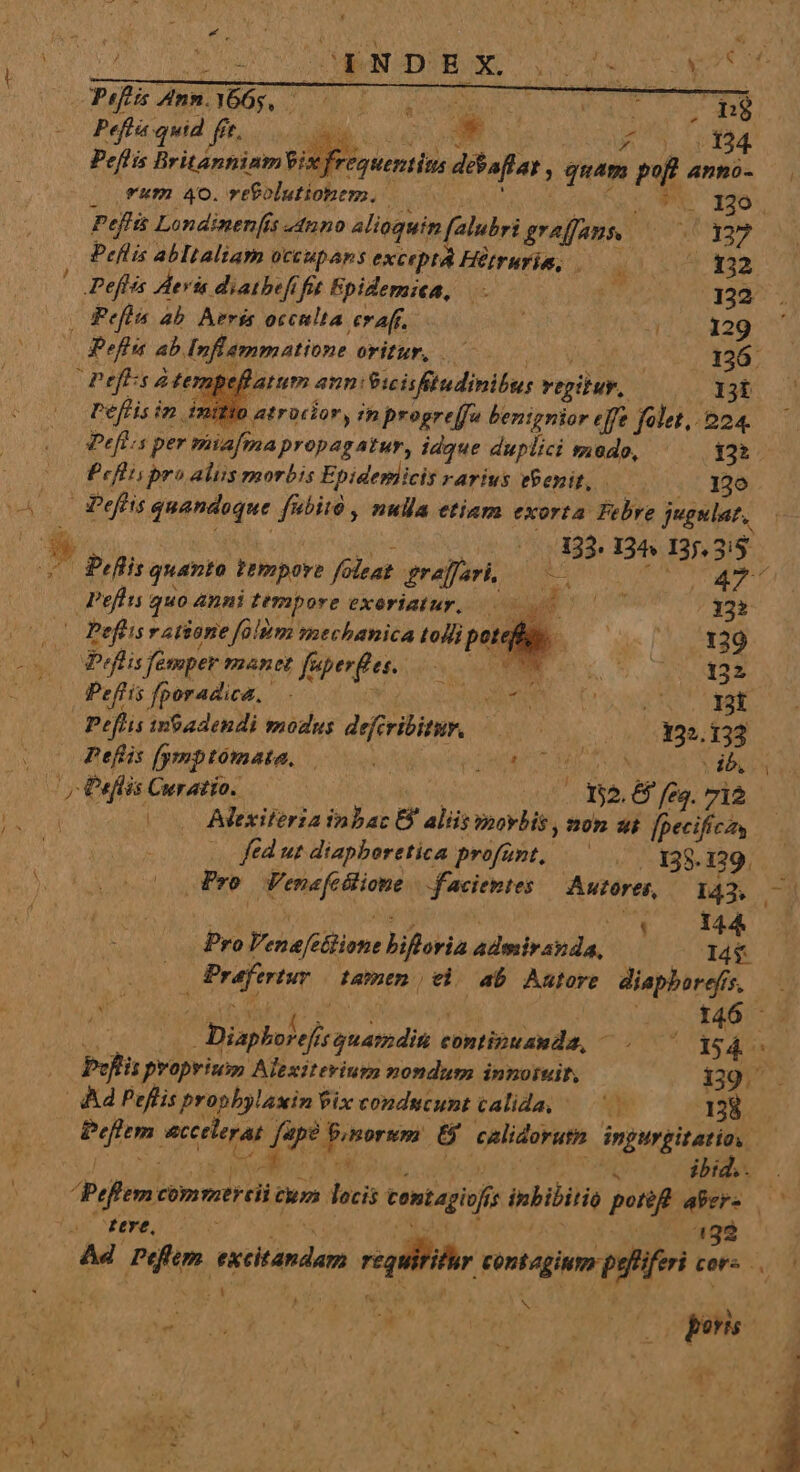 INDEX.
Peſtis Ann. 1665,
Peſtis quid ſit. 134
Peſtis Britanniam vix frequentius devaſtat, quam poſt anno-
rum 40. revolutionem. 130
Peſtis Londinenſis Anno alioquin ſalubri graſſans. 137
Peſtis abItaliam occupans exceptâ Hetruria, 132
Peſtis Aeris diatheſi fit Epidemica, 132
Peſtis ab Aeris occulta craſi. 129
Peſtis ab Inflammatione oritur, 136
Peſtis à tempeſtatum anni viciſſitudinibus regitur, 131
Peſtis in initio atrocior, in progreſſu benignior eſſe ſolet, 224
Peſtis per miaſma propagatur, idque duplici modo, 132
Peſtis pro aliis morbis Epidemicis rarius evenit, 130
Peſtis quandoque ſubitò, nulla etiam exorta Febre jugulat,
133. 134. 135. 315
Peſtis quanto tempore ſoleat graſſari, 47
Peſtis quo anni tempore exoriatur, 132
Peſtis ratione ſolùm mechanica tolli poteſt 139
Peſtis ſemper manet ſuperſtes. 132
Peſtis ſporadica, 131
Peſtis invadendi modus deſcribitur, 132. 133
Peſtis ſymptomata, ib.
Peſtis Curatio. 152. & ſeq. 712
Alexiteria in hac & aliis morbis, non ut ſpecifica,
ſed ut diaphoretica proſunt, 138. 139
Pro Venæſectione facientes Autores, 143.
144
Pro Venæſectione hiſtoria admiranda, 145
Præfertur tamen ei ab Autore diaphoreſis,
146
Diaphoreſis quamdiu continuanda, 154
Peſtis proprium Alexiterium nondum innotuit, 139
Ad Peſtis prophylaxin vix conducunt calida, 138
Peſtem accelerat ſæpè vinorum & calidorum ingurgitatio,
ibid.
Peſtem commercii cum locis contagioſis inhibitio poteſt aver-
tere, 132
Ad Peſtem excitandam requiritur contagium peſtiferi cor-
poris